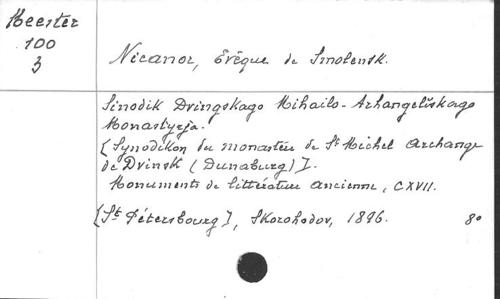 Meester
100
3
Nicanor, Evêque de Smolensk.
Sinodik Dvinskago Mihailo-Arhangelĭskago
Monastyrja.
[Synodikon du monastère de St Michel Archange
de Dvinsk (Dunaburg)].
Monuments de littérature ancienne, CXVII.
[St Pétersbourg], Skorohodov, 1896. 8º